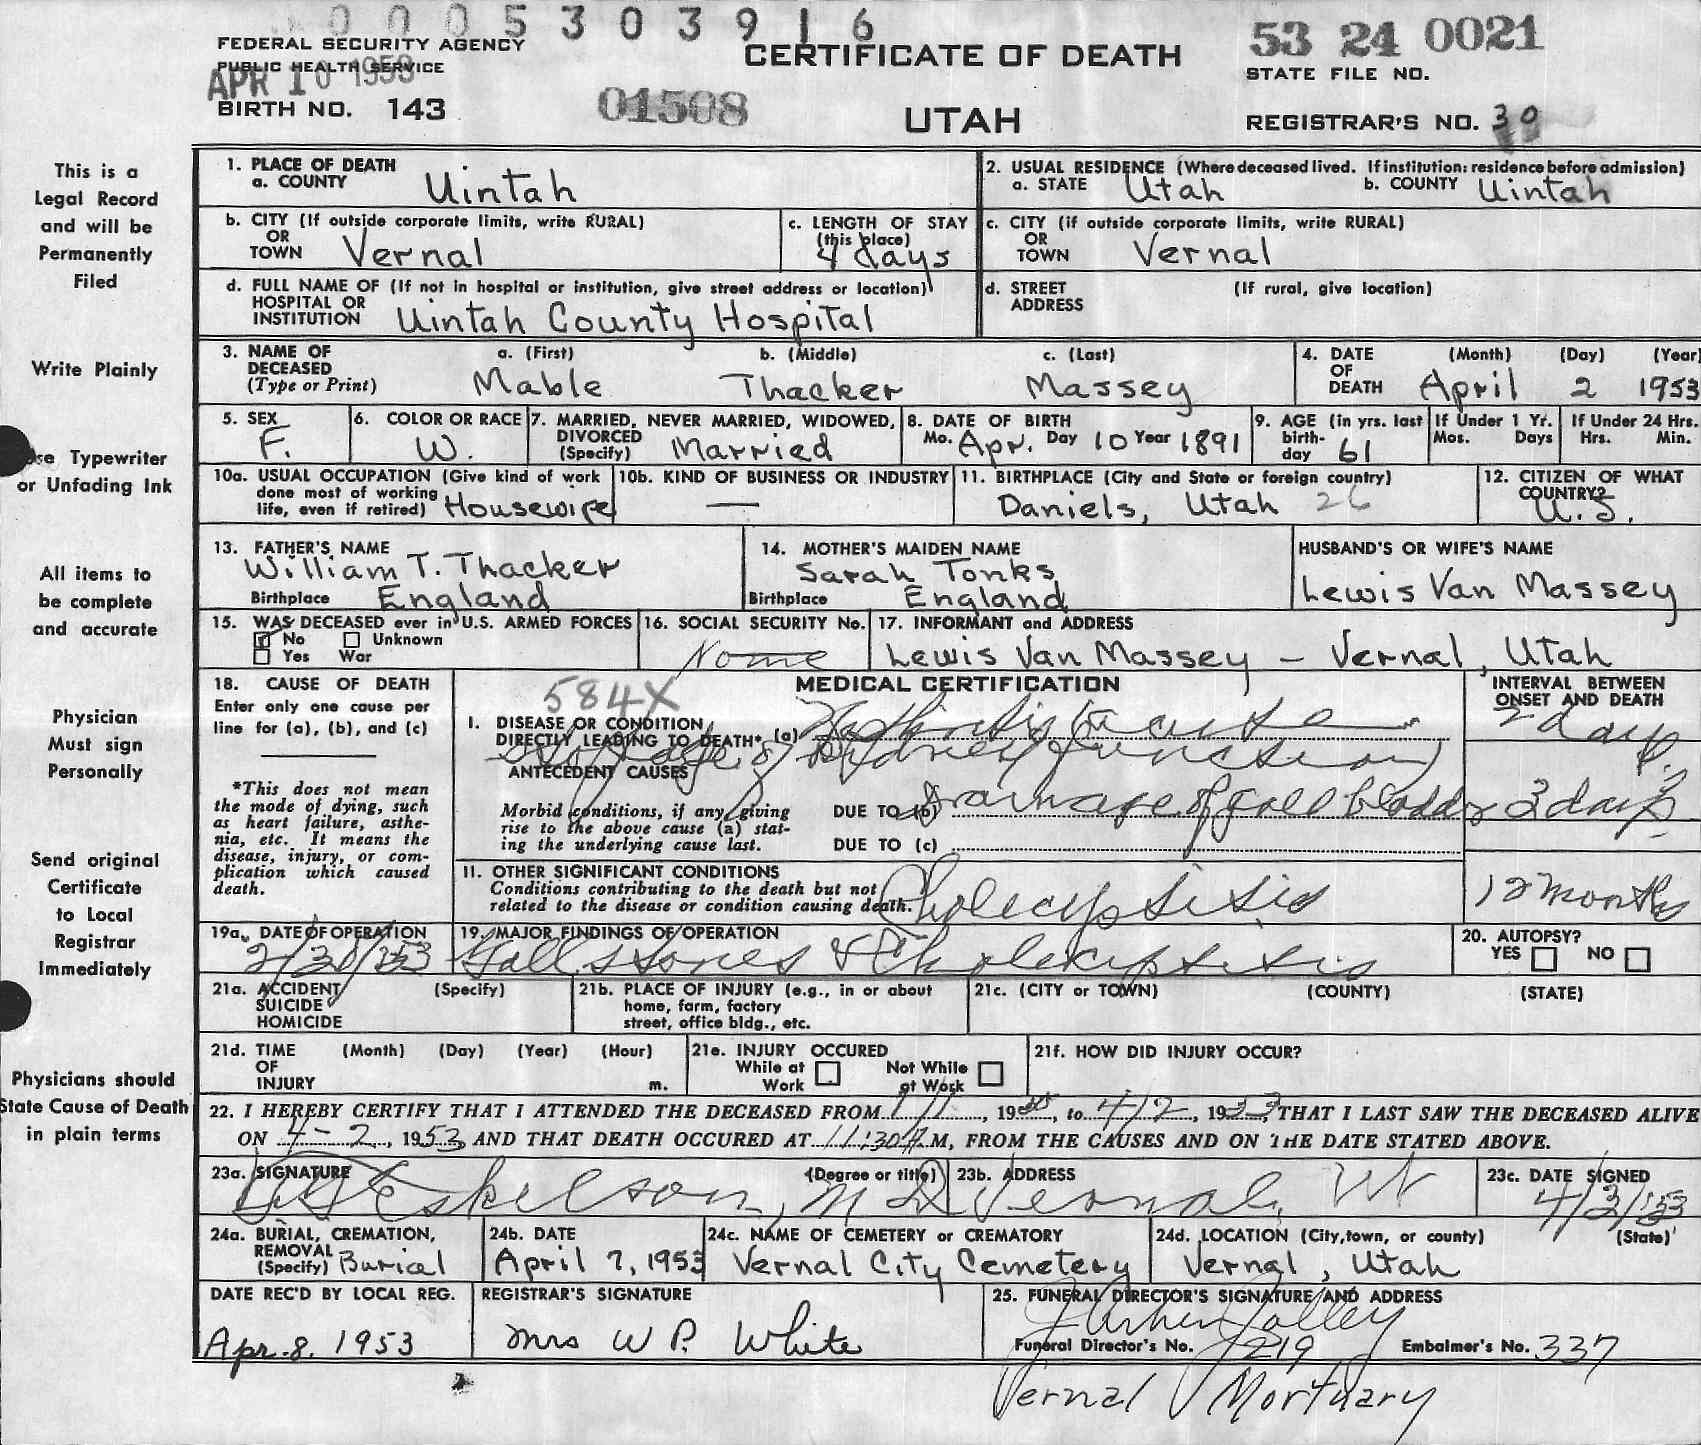 0005303916
FEDERAL SECURITY AGENCY
PUBLIC HEALTH SERVICE
APR 10 1953
BIRTH NO. 143
01508
CERTIFICATE OF DEATH
UTAH
53 24 0021
STATE FILE NO.
REGISTRAR'S NO. 30
This is a
Legal Record
and will be
Permanently
Filed
Write Plainly
Use Typewriter
or Unfading Ink
All items to
be complete
and accurate
Physician
Must sign
Personally
Send original
Certificate
to Local
Registrar
Immediately
Physicians should
State Cause of Death
in plain terms
1. PLACE OF DEATH
a. COUNTY Uintah
2. USUAL RESIDENCE (Where deceased lived. If institution: residence before admission)
a. STATE Utah b. COUNTY Uintah
b. CITY (If outside corporate limits, write RURAL)
OR
TOWN Vernal
c. LENGTH OF STAY
(this place)
4 days
c. CITY (if outside corporate limits, write RURAL)
OR
TOWN Vernal
d. FULL NAME OF (If not in hospital or institution, give street address or location)
HOSPITAL OR
INSTITUTION Uintah County Hospital
d. STREET (If rural, give location)
ADDRESS
3. NAME OF DECEASED (Type or Print)
a. (First) b. (Middle) c. (Last)
Mable Thacker Massey
4. DATE OF DEATH (Month) (Day) (Year)
April 2 1953
5. SEX
F.
6. COLOR OR RACE
W.
7. MARRIED, NEVER MARRIED, WIDOWED,
DIVORCED
(Specify) Married
8. DATE OF BIRTH
Mo. Apr. Day 10 Year 1891
9. AGE (in yrs. last
birth-
day 61
If Under 1 Yr.
Mos. Days
If Under 24 Hrs.
Hrs. Min.
10a. USUAL OCCUPATION (Give kind of work
done most of working
life, even if retired) Housewife
10b. KIND OF BUSINESS OR INDUSTRY
—
11. BIRTHPLACE (City and State or foreign country)
Daniels, Utah 26
12. CITIZEN OF WHAT
COUNTRY?
U.S.
13. FATHER'S NAME
William T. Thacker
Birthplace England
14. MOTHER'S MAIDEN NAME
Sarah Tonks
Birthplace England
HUSBAND'S OR WIFE'S NAME
Lewis Van Massey
15. WAS DECEASED ever in U.S. ARMED FORCES
No Unknown
Yes War
16. SOCIAL SECURITY No.
None
17. INFORMANT and ADDRESS
Lewis Van Massey – Vernal, Utah
18. CAUSE OF DEATH
Enter only one cause per
line for (a), (b), and (c)
*This does not mean
the mode of dying, such
as heart failure, asthe-
nia, etc. It means the
disease, injury, or com-
plication which caused
death.
584X
MEDICAL CERTIFICATION
INTERVAL BETWEEN
ONSET AND DEATH
I. DISEASE OR CONDITION
DIRECTLY LEADING TO DEATH* (a) Nephritis acute
2 days
of kidney function
ANTECEDENT CAUSES
Morbid conditions, if any, giving
rise to the above cause (a) stat-
ing the underlying cause last.
DUE TO (b) Drainage of gall bladder 3 days
DUE TO (c)
11. OTHER SIGNIFICANT CONDITIONS
Conditions contributing to the death but not
related to the disease or condition causing death.
Cholecyptitis 12 months
19a. DATE OF OPERATION
19. MAJOR FINDINGS OF OPERATION
Gall stones & Cholecyptitis
20. AUTOPSY?
YES NO
21a. ACCIDENT (Specify)
SUICIDE
HOMICIDE
21b. PLACE OF INJURY (e.g., in or about
home, farm, factory
street, office bldg., etc.
21c. (CITY or TOWN) (COUNTY) (STATE)
21d. TIME (Month) (Day) (Year) (Hour)
OF
INJURY m.
21e. INJURY OCCURED
While at Work Not While at Work
21f. HOW DID INJURY OCCUR?
22. I HEREBY CERTIFY THAT I ATTENDED THE DECEASED FROM 1/1, 19 , to 4/2, 1953, THAT I LAST SAW THE DECEASED ALIVE
ON 4-2, 1953, AND THAT DEATH OCCURED AT 11:30 M, FROM THE CAUSES AND ON THE DATE STATED ABOVE.
23a. SIGNATURE (Degree or title)
Eskelson, M D
23b. ADDRESS
Vernal, Ut
23c. DATE SIGNED
4/3/53
24a. BURIAL, CREMATION,
REMOVAL
(Specify) Burial
24b. DATE
April 7, 1953
24c. NAME OF CEMETERY or CREMATORY
Vernal City Cemetery
24d. LOCATION (City, town, or county) (State)
Vernal, Utah
DATE REC'D BY LOCAL REG.
Apr. 8, 1953
REGISTRAR'S SIGNATURE
Mrs W P. White
25. FUNERAL DIRECTOR'S SIGNATURE AND ADDRESS
Jolley
Funeral Director's No. 219 Embalmer's No. 337
Vernal Mortuary